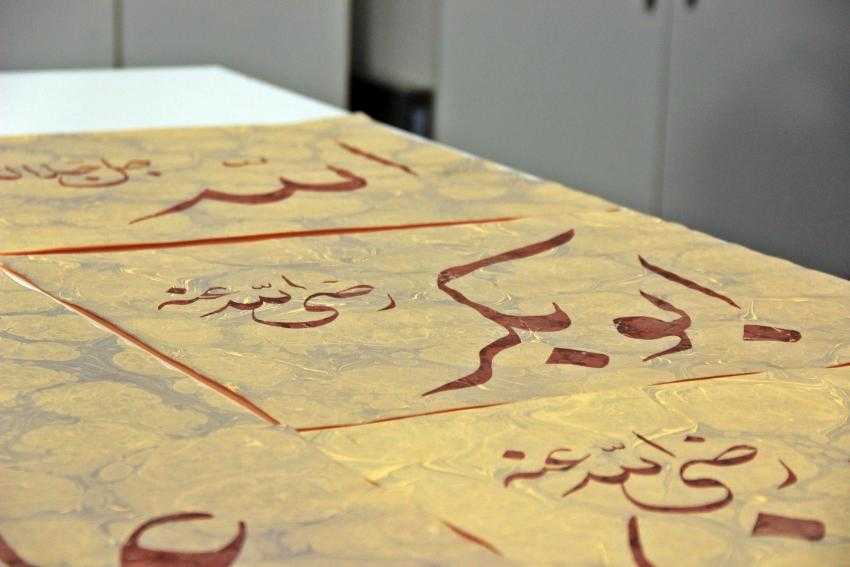 الله جل جلاله
ابو بكر رضي الله عنه
رضي الله عنه